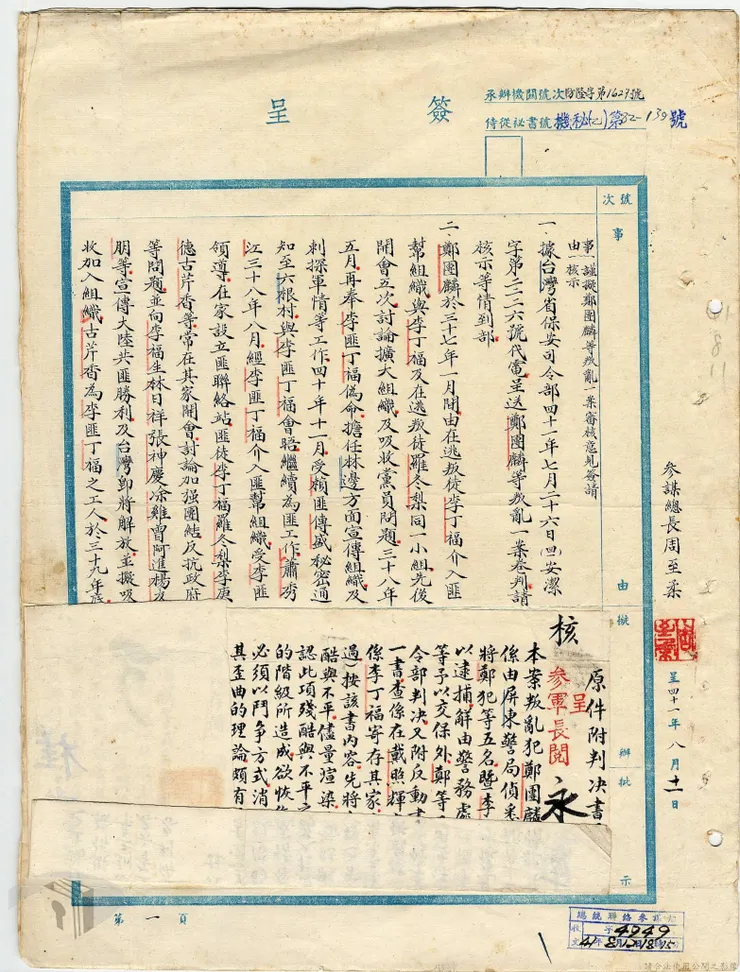 簽呈
承辦機關號次防隆字第1627號
侍從祕書號機秘(乙)第32-139號
參謀總長周至柔
呈四十一年八月十一日
號次
事由擬辦批示
事由：謹擬鄭團麟等叛亂一案審核意見簽請核示
一、據台灣省保安司令部四十一年七月二十六日(四一)安潔
字第二二二六號代電呈送鄭團麟等叛亂一案卷判請
核示等情到部
二、鄭團麟於三十七年一月間由在逃叛徒李丁福介入匪
幫組織與李丁福及在逃叛徒羅冬梨同一小組先後
開會五次討論擴大組織及吸收黨員問題三十八年
五月再奉李匪丁福偽命擔任林邊方面宣傳組織及
刺探軍情等工作四十年十一月受賴匪傳盛秘密通
知至六根村與李匪丁福會晤繼續為匪工作蕭秀
江三十八年八月經李匪丁福介入匪幫組織受李匪
領導在家設立匪聯絡站匪徒李丁福羅冬梨李庚
德古芹香等常在其家開會討論加强團結反抗政府
等問題並向李福生林日祥張神慶涂雞曾阿進楊
朋等宣傳大陸共匪勝利及台灣即將解放並擬吸
收加入組織古芹香為李匪丁福之工人於三十九年
原件附判決書
呈
參軍長閱
核
永
本案叛亂犯鄭團麟
係由屏東警局偵悉
將鄭犯等五名暨李
以逮捕解由警務處
等予以交保外鄭等
令部判決又附反動
一書查係在戴照輝
係李丁福寄存其家
過)按該書內容先將
酷與不平儘量瑄染
認此項殘酷與不平
的階級所造成欲恢
必須以鬥爭方式消
其歪曲的理論頗有
第一頁
總統聯絡參謀
收文
字4949
41年8月12日